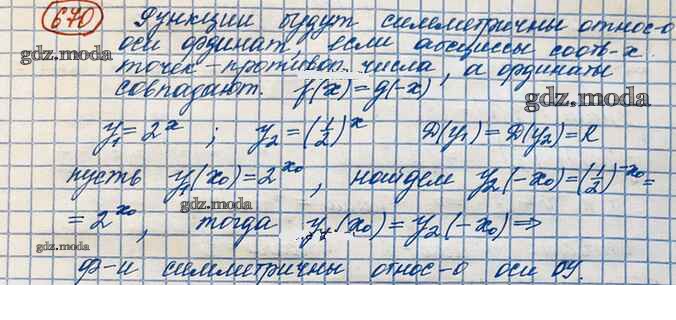 670 Функции будут симметричны относ-о
gdz.moda оси ординат, если абсциссы соотв-х
точек - противоп. числа, а ординаты
совпадают. f(x) = g(-x)
gdz.moda
y₁ = 2ˣ ; y₂ = (1/2)ˣ D(y₁) = D(y₂) = R
пусть y₁(x₀) = 2^x₀, найдем y₂(-x₀) = (1/2)^-x₀ =
gdz.moda
= 2^x₀, тогда y₁(x₀) = y₂(-x₀) ⇒
gdz.moda
gdz.moda
ф-и симметричны относ-о оси OY.